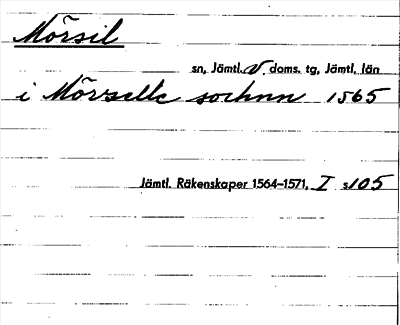 Mörsil
sn, Jämtl. v doms. tg, Jämtl. län
i Mörselle sochnn 1565
Jämtl. Räkenskaper 1564–1571, I s 105